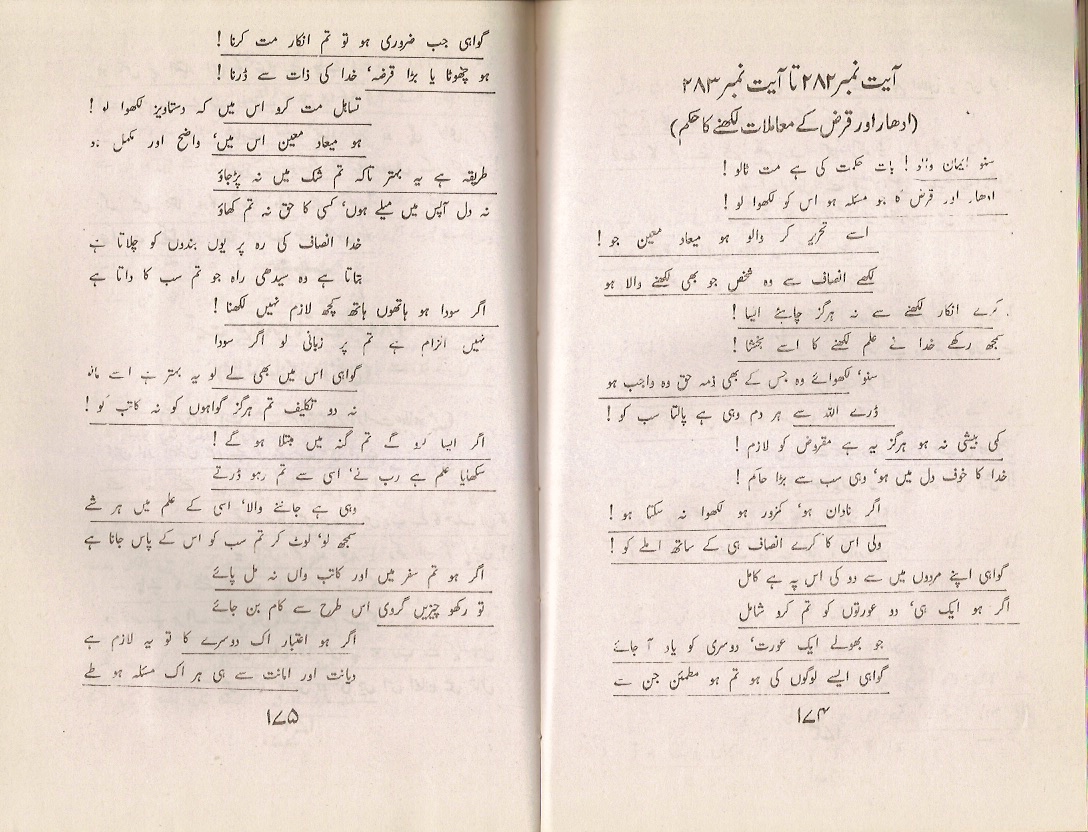 آیت نمبر ۲۸۲ تا آیت نمبر ۲۸۳
(ادھار اور قرض کے معاملات لکھنے کا حکم)
سنو ایمان والو ! بات حکمت کی ہے مت ٹالو !
ادھار اور قرض کا جو مسئلہ ہو اس کو لکھوا لو !
اسے تحریر کر ڈالو ہو میعاد معین جو !
لکھے انصاف سے وہ شخص جو بھی لکھنے والا ہو
کرے انکار لکھنے سے نہ ہرگز چاہئے ایسا !
سمجھ رکھے خدا نے علم لکھنے کا اسے بخشا !
سنو‘ لکھوائے وہ جس کے بھی ذمہ حق وہ واجب ہو
ڈرے اللہ سے ہر دم وہی ہے پالتا سب کو !
کمی بیشی نہ ہو ہرگز یہ ہے مقروض کو لازم !
خدا کا خوف دل میں ہو‘ وہی سب سے بڑا حاکم !
اگر نادان ہو‘ کمزور ہو لکھوا نہ سکتا ہو !
ولی اس کا کرے انصاف ہی کے ساتھ املے کو !
گواہی اپنے مردوں میں سے دو کی اس پہ ہے کامل
اگر ہو ایک ہی‘ دو عورتوں کو تم کرو شامل
جو بھولے ایک عورت‘ دوسری کو یاد آ جائے
گواہی ایسے لوگوں کی ہو تم ہو مطمئن جن سے
۱۷۴
گواہی جب ضروری ہو تو تم انکار مت کرنا !
ہو چھوٹا یا بڑا قرضہ‘ خدا کی ذات سے ڈرنا !
تساہل مت کرو اس میں کہ دستاویز لکھوا لو !
ہو میعاد معین اس میں‘ واضح اور مکمل ہو
طریقہ ہے یہ بہتر تاکہ تم شک میں نہ پڑجاؤ
نہ دل آپس میں میلے ہوں‘ کسی کا حق نہ تم کھاؤ
خدا انصاف کی رہ پر یوں بندوں کو چلاتا ہے
بتاتا ہے وہ سیدھی راہ جو تم سب کا داتا ہے
اگر سودا ہو ہاتھوں ہاتھ کچھ لازم نہیں لکھنا !
نہیں الزام ہے تم پر زبانی لو اگر سودا
گواہی اس میں بھی لے لو یہ بہتر ہے اسے مانو
نہ دو تکلیف تم ہرگز گواہوں کو نہ کاتب کو !
اگر ایسا کرو گے تم گنہ میں مبتلا ہو گے !
سکھایا علم ہے رب نے‘ اسی سے تم رہو ڈرتے
وہی ہے جاننے والا‘ اسی کے علم میں ہر شے
سمجھ لو‘ لوٹ کر تم سب کو اس کے پاس جانا ہے
اگر ہو تم سفر میں اور کاتب واں نہ مل پائے
تو رکھو چیزیں گروی اس طرح سے کام بن جائے
اگر ہو اعتبار اک دوسرے کا تو یہ لازم ہے
دیانت اور امانت سے ہی ہر اک مسئلہ ہو طے
۱۷۵